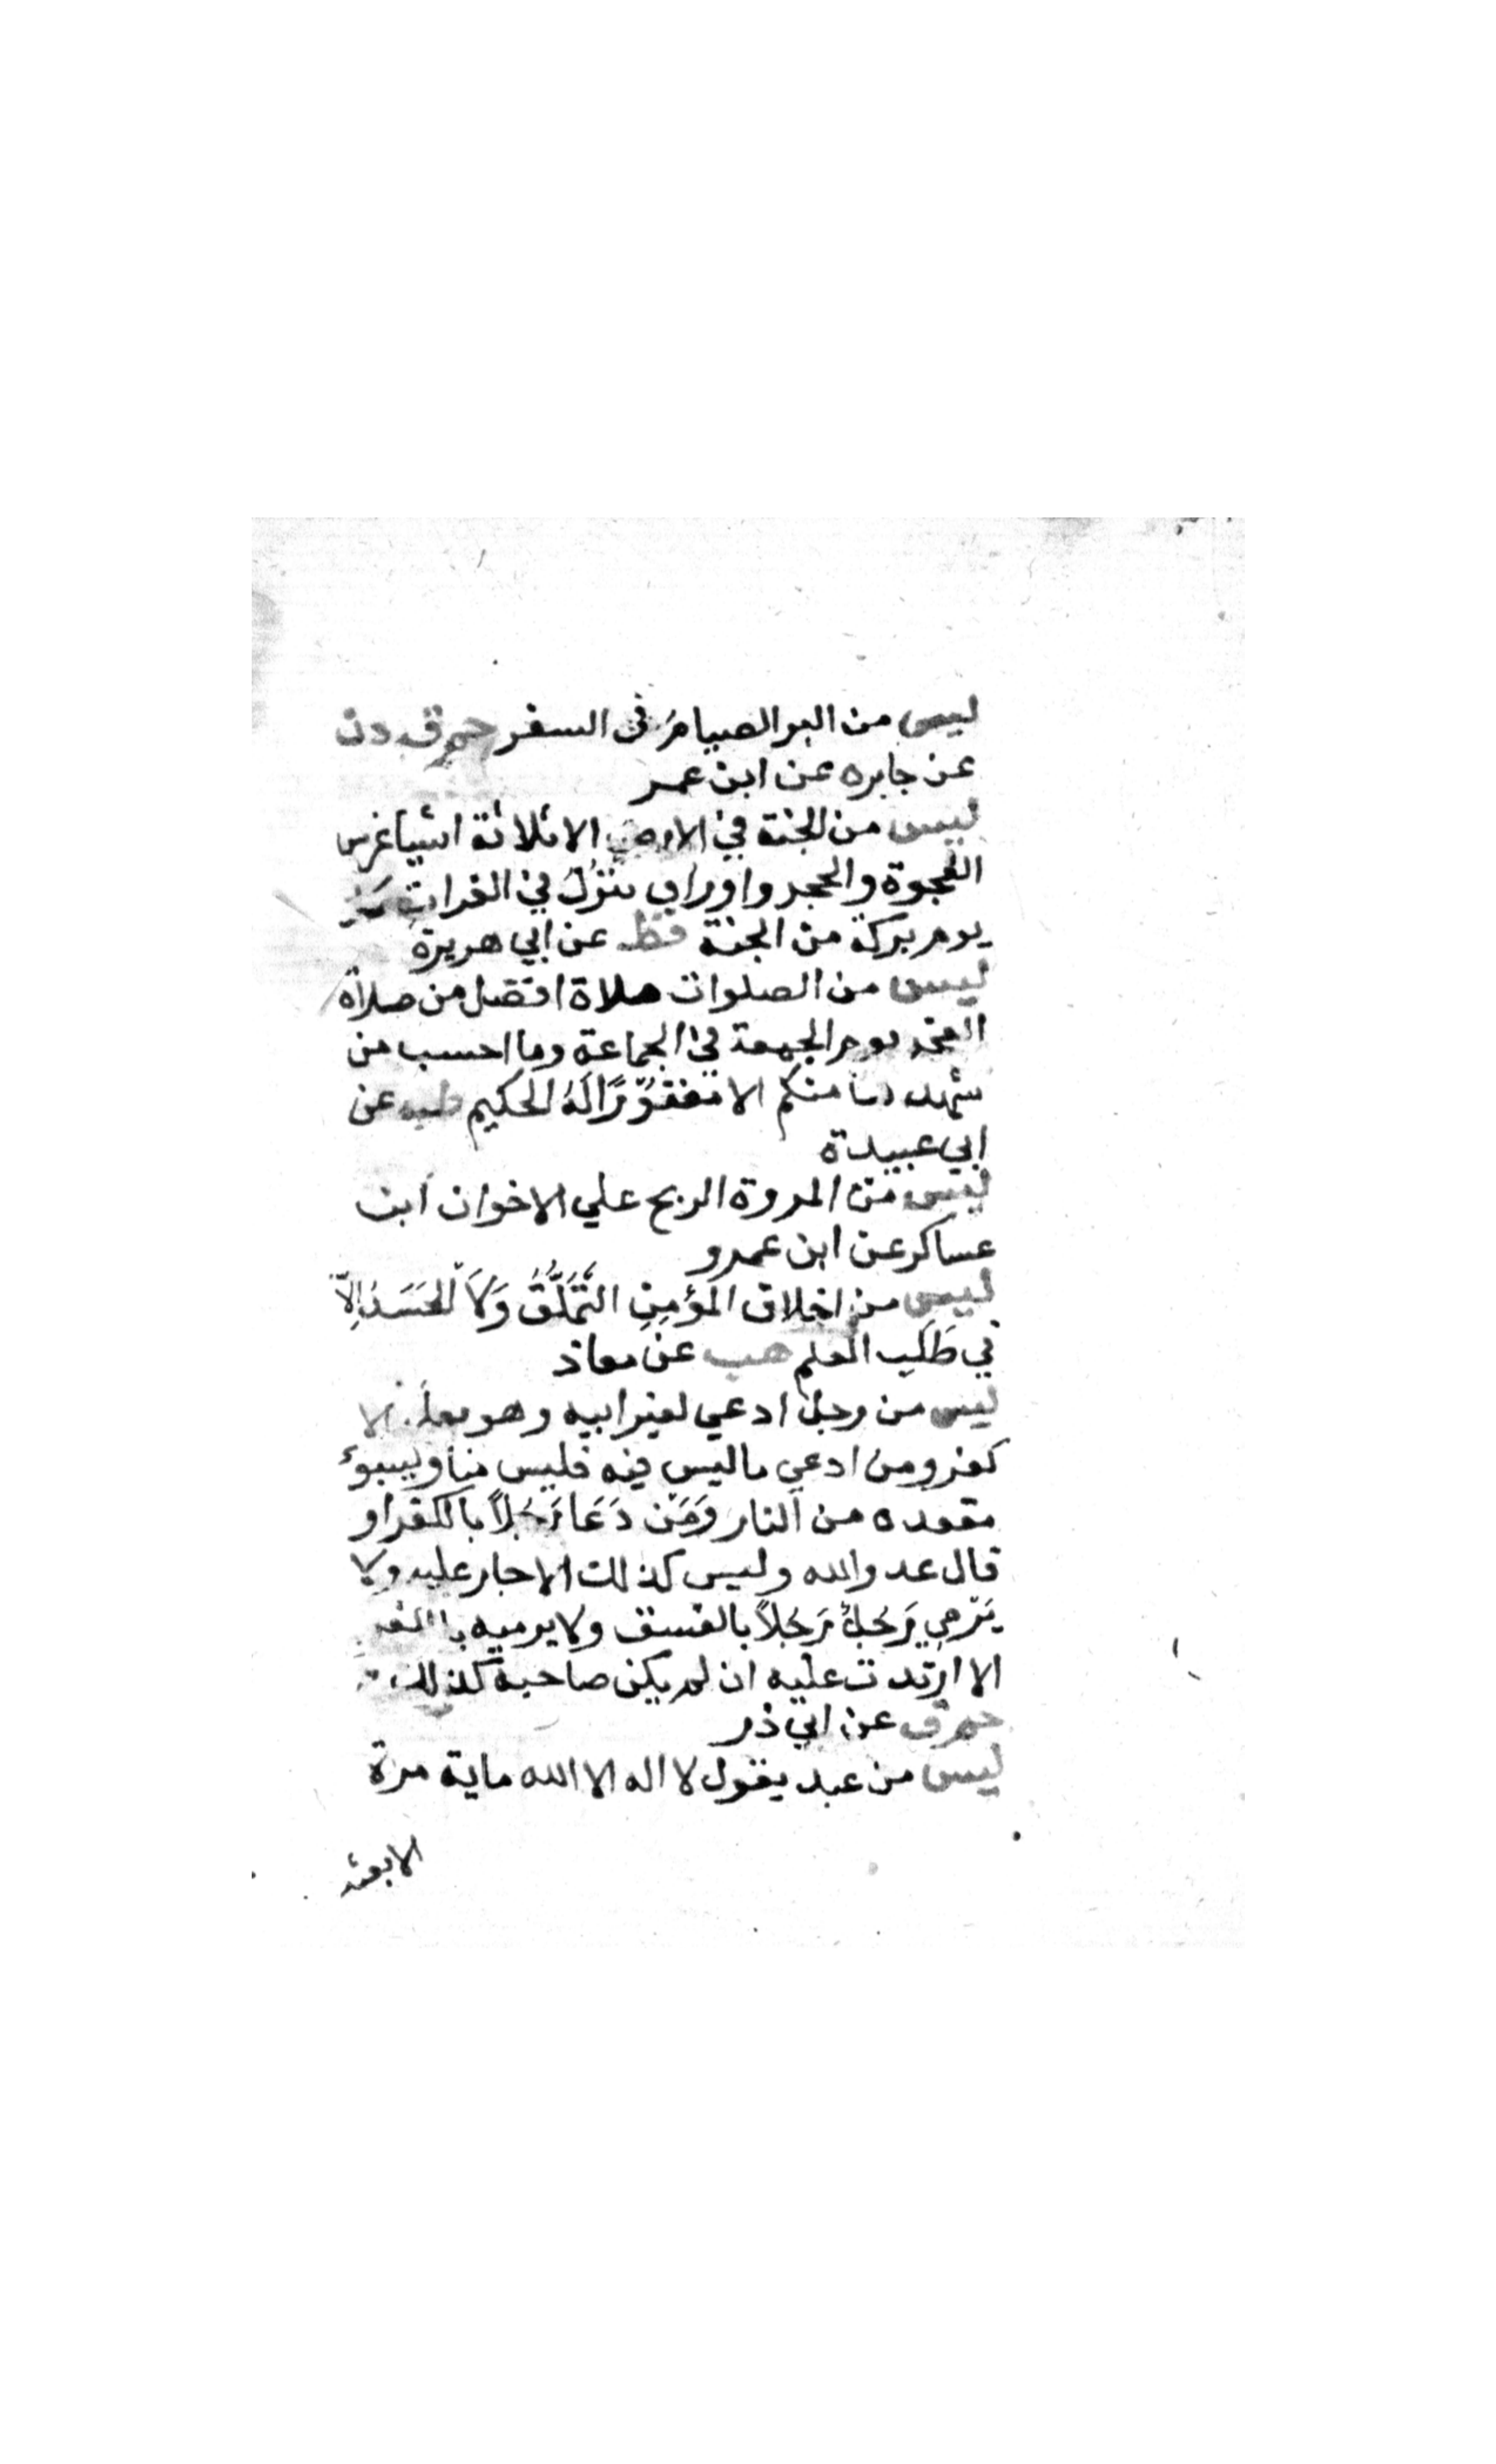 ليس من البر الصيامُ في السفر حم ق د ن
عن جابر ه عن ابن عمر
ليس من الجنة في الارض الا ثلاثة اشيا غرس
العجوة والحجر واوراق تنزل في الفرات كل
يوم بركة من الجنة خط عن ابي هريرة
ليس من الصلوات صلاة افضل من صلاة
الفجر يوم الجمعة في الجماعة وما احسب من
شهدها منكم الا مغفورًا لَهُ الحكيم طب عن
ابي عبيدة
ليس من المروة الربح علي الاخوان ابن
عساكر عن ابن عمرو
ليس من اخلاق المؤمِنِ التَّمَلُّقُ وَلَا الحَسَدُ اِلّا
في طَلَبِ العلم هب عن معاذ
ليس من رجل ادعي لغير ابيه وهو يعلم الا
كفر ومن ادعي ما ليس فيه فليس منا وليتبوءُ
مقعده من النار وَمَن دَعَا رَجُلاً بالكفر او
قال عدو الله وليس كذلك الا حار عليه ولا
يَرْمِي رَجُلٌ رَجُلاً بالفسق ولا يرميه بالكفر
الا ارتدت عليه ان لم يكن صاحبه كذلك
حم ق عن ابي ذر
ليس من عبد يقول لا اله الا الله ماية مرة
الا بعثه